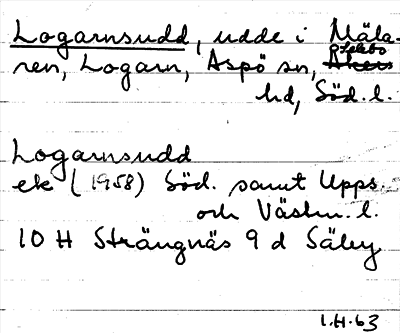 Logarnsudd, udde i Mäla-
ren, Logarn, Aspö sn, Selebo
hd, Söd. l.
Logarnsudd
ek (1958) Söd. samt Upps.
och Västm. l.
10 H Strängnäs 9 d Säby
I.H.63